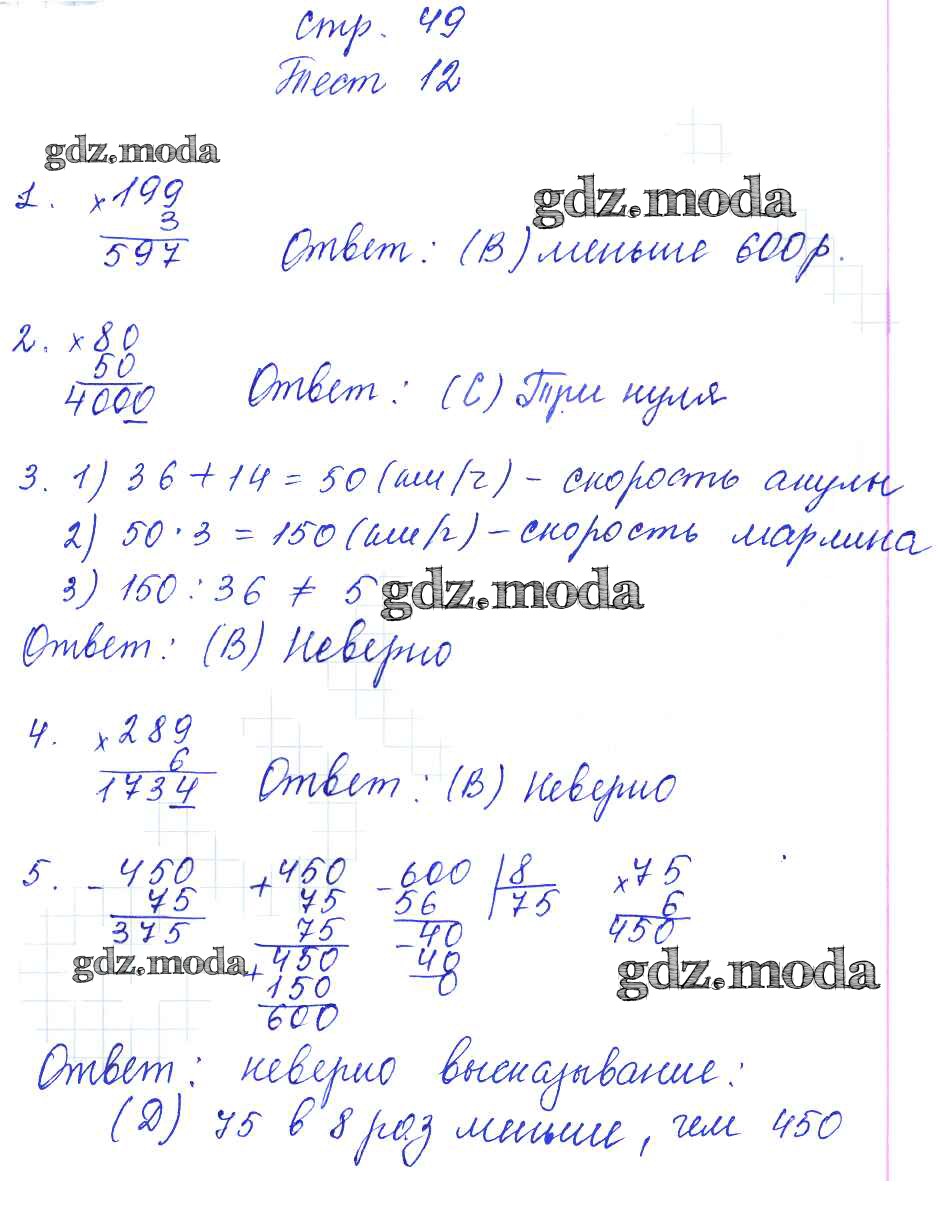 стр. 49
Тест 12
gdz.moda
gdz.moda
1. × 199
3
597
Ответ: (В) меньше 600 р.
2. × 80
50
4000
Ответ: (С) Три нуля
3. 1) 36 + 14 = 50 (км/ч) - скорость акулы
2) 50 · 3 = 150 (км/ч) - скорость марлина
3) 150 : 36 ≠ 5
gdz.moda
Ответ: (В) Неверно
4. × 289
6
1734
Ответ: (В) неверно
5. - 450
75
375
+ 450
75
75
+ 450
150
600
- 600 | 8
56 75
- 40
40
0
× 75
6
450
gdz.moda
gdz.moda
Ответ: неверно высказывание:
(D) 75 в 8 раз меньше, чем 450